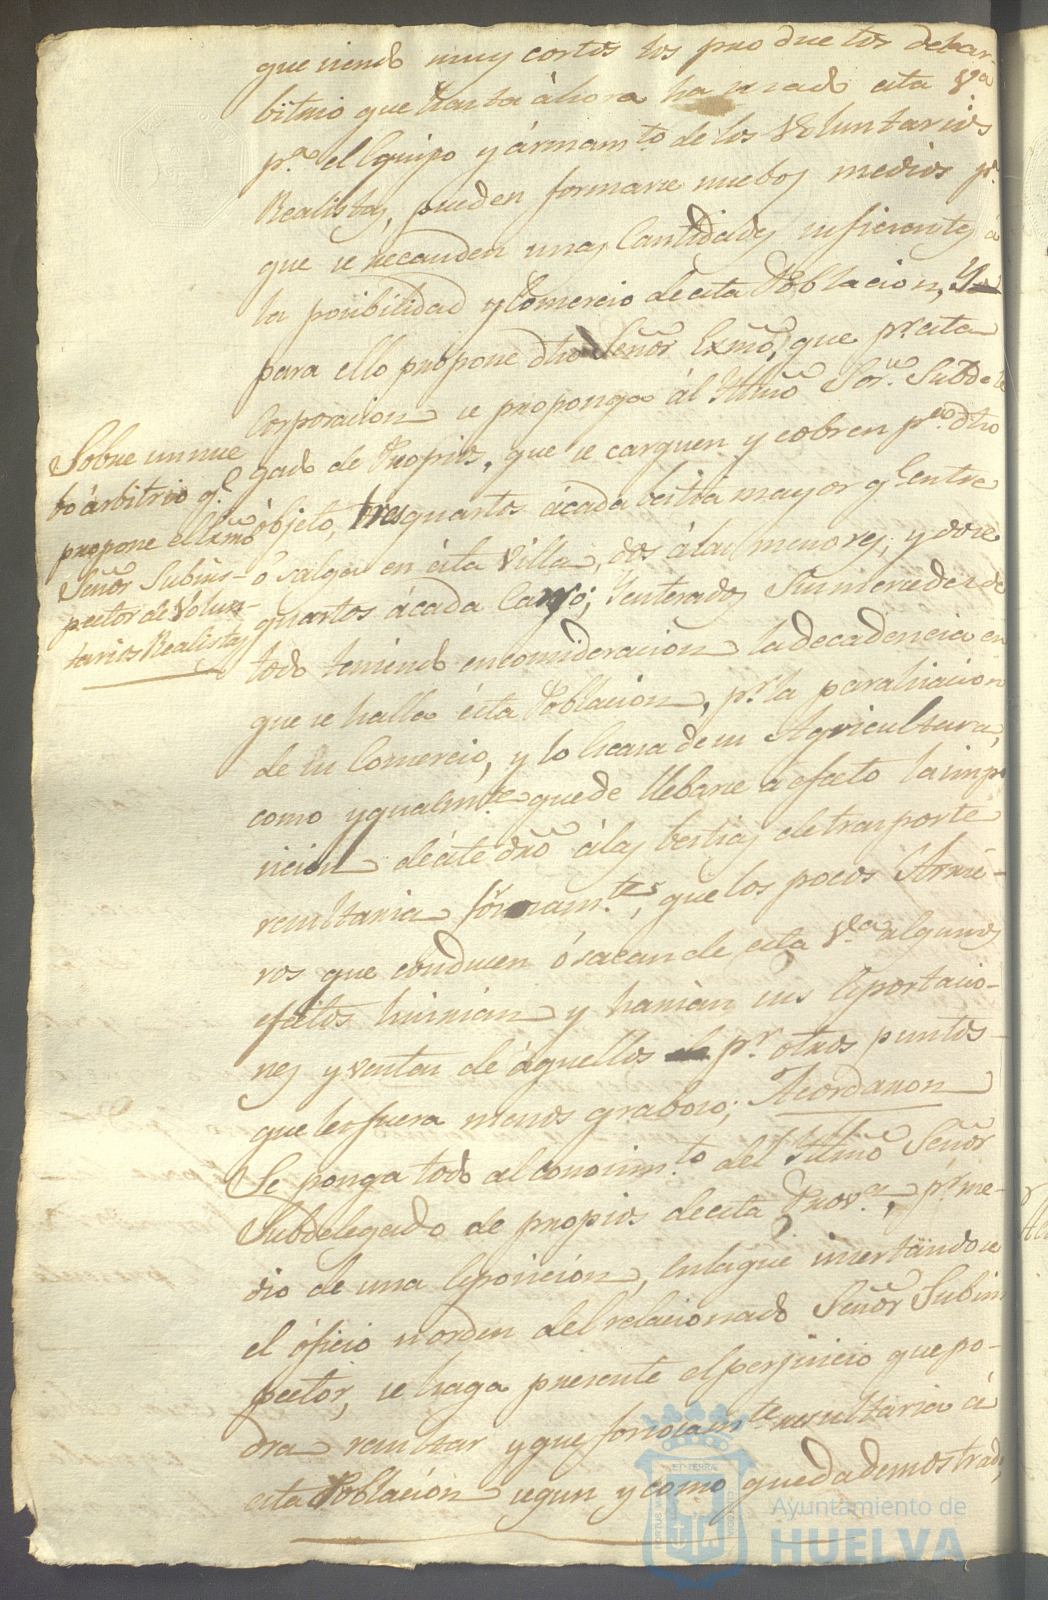 que siendo muy cortos los productos del ar-
bitrio que hasta áhora ha usado esta Vª
pª el Equipo y ármamto de los Voluntarios
Realistas, pueden formarse nuebos medios pª
que se recauden unas Cantidades suficientes á
la posibilidad y Comercio de esta Poblacion, Y
para ello propone dho Señór Exmõ, que pr esta
Corporacion se proponga ál Yltmõ Sor. Subdele
gado de Propios, que se carguen y cobren pª dho
óbjeto, tres quartos ácada bestia mayor qe entre
ó salga en ésta Villa, dos á las menores, y doce
quartos ácada Carro; Yenterados Sus mercedes de
todo teniendo en consideracion la decadencia en
que se halla ésta Poblacion, pr la paralisacion
de su Comercio, y lo escasa de su Agricultura,
como ygualmte que de llebarse a efecto la impo
sicion de éste dro á las bestias de trasporte
resultaria forsosamte, que los pocos Arrie-
ros que conducen ó sacan de esta Vª algunos
efectos huirian y harian sus Esportacio-
nes y ventas de áquellos pr otros puntos
que les fuera menos graboso; Acordaron
Se ponga todo al conocimto del Yltmõ Señór
Subdelegado de propios de esta Provª, pr me-
dio de una Esposicion, en la que insertándose
el óficio u orden del relacionado Señór Subins
pector, se haga presente el perjuicio que po-
dra resultar y que forsosamte resultaria á
esta Poblacion segun y como queda demostrado,
Sobre un nue
bo árbitrio qe
propone el Exmõ
Señór Subins-
pector de Volun-
tarios Realistas
Ayuntamiento de
HUELVA